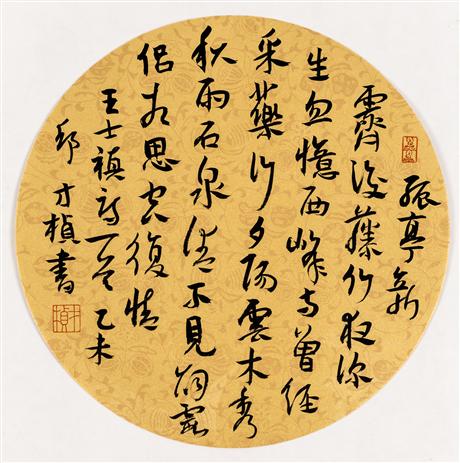 孤亭新
霽後藤竹夜深
生忽憶西峰寺曾經
采藥行夕陽雲木秀
秋雨石泉清不見飡霞
侶相思空復情
王士禛詩一首 乙未
邱才楨書